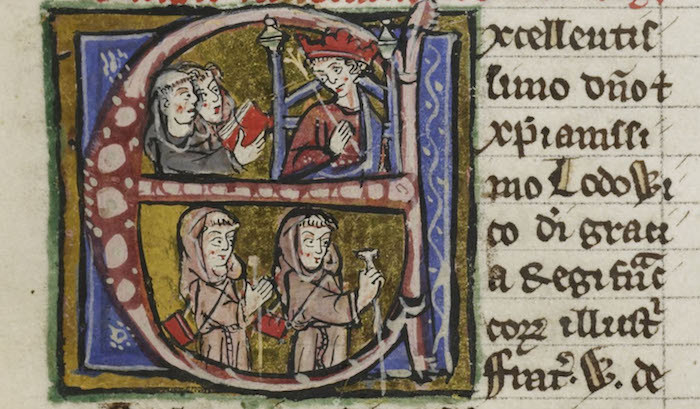 Excellentis
simo dño ⁊
xp̄ianissi
mo Lodowi
co dī grati
a Regi frāc
coꝝ illustꝰ
ffratꝰ. W. de